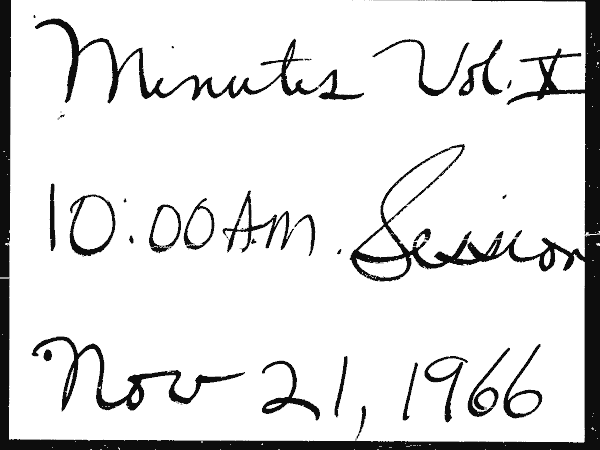 Minutes Vol. X
10:00 AM. Session
Nov 21, 1966